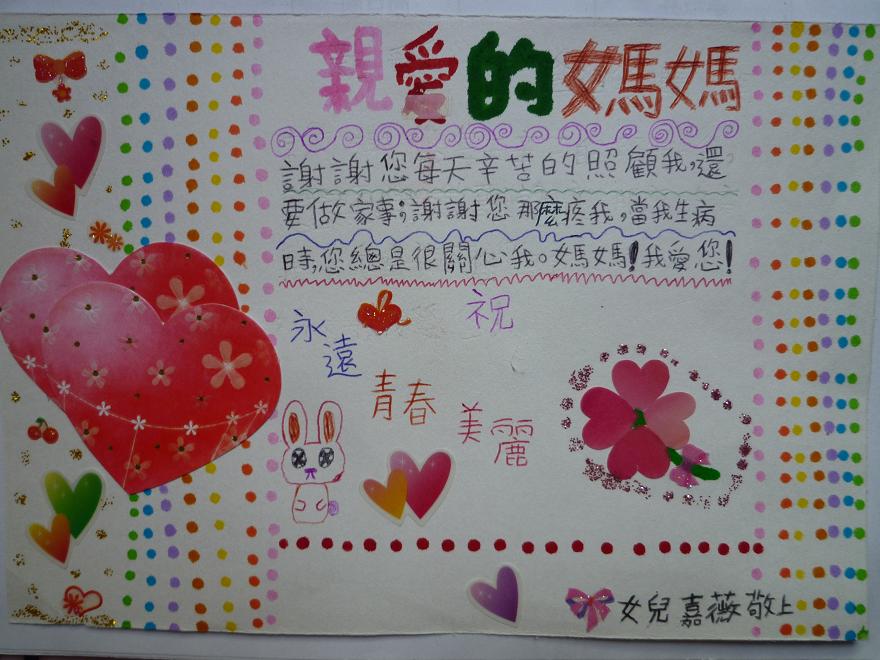 親愛的媽媽
謝謝您每天辛苦的照顧我,還
要做家事;謝謝您那麼疼我,當我生病
時,您總是很關心我。媽媽!我愛您!
祝
永遠
青春
美麗
女兒 嘉薇 敬上